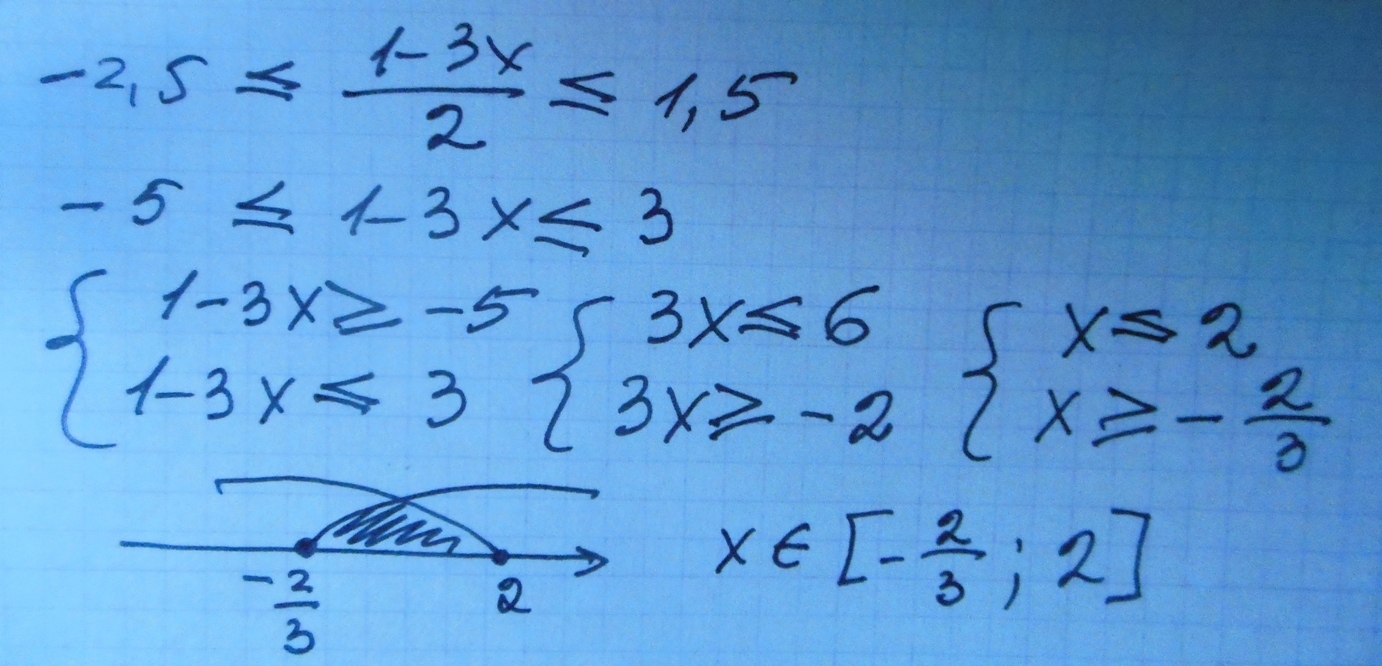 -2,5 ≤ (1-3x)/2 ≤ 1,5
-5 ≤ 1-3x ≤ 3
{ 1-3x ≥ -5 { 3x ≤ 6 { x ≤ 2
1-3x ≤ 3 3x ≥ -2 x ≥ -2/3
-2/3 2 x ∈ [-2/3; 2]